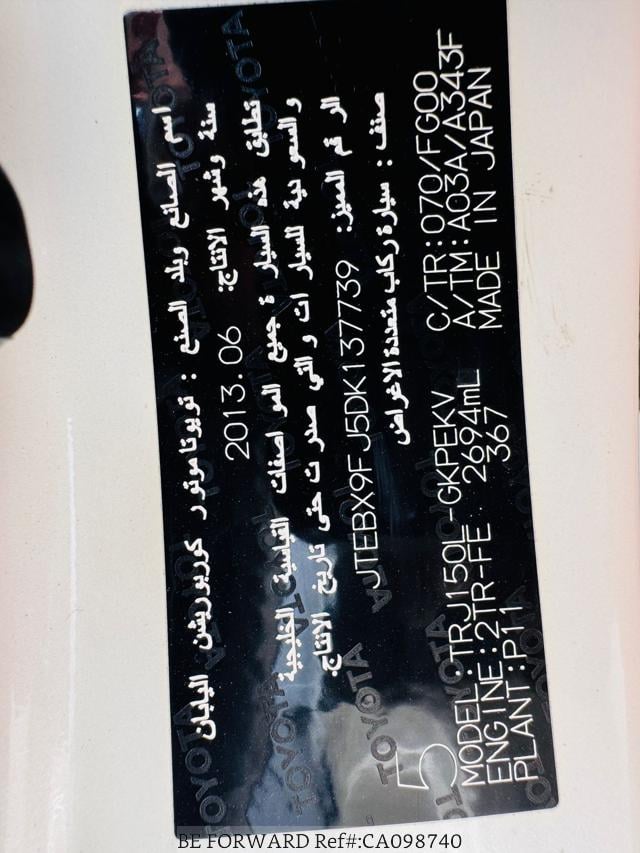 اسم الصانع وبلد الصنع : تويوتا موتور كوربوريشن اليابان
سنة وشهر الانتاج: 2013.06
تطابق هذه السيارة جميع المواصفات القياسية الخليجية
والسعودية للسيارات والتي صدرت حتى تاريخ الانتاج.
الرقم المميز: JTEBX9FJ5DK137739
صنف : سيارة ركاب متعددة الاغراض
5
MODEL:TRJ150L-GKPEKV C/TR:070/FG00
ENGINE:2TR-FE 2694mL A/TM:A03A/A343F
PLANT:P11 367 MADE IN JAPAN
TOYOTA
BE FORWARD Ref#:CA098740